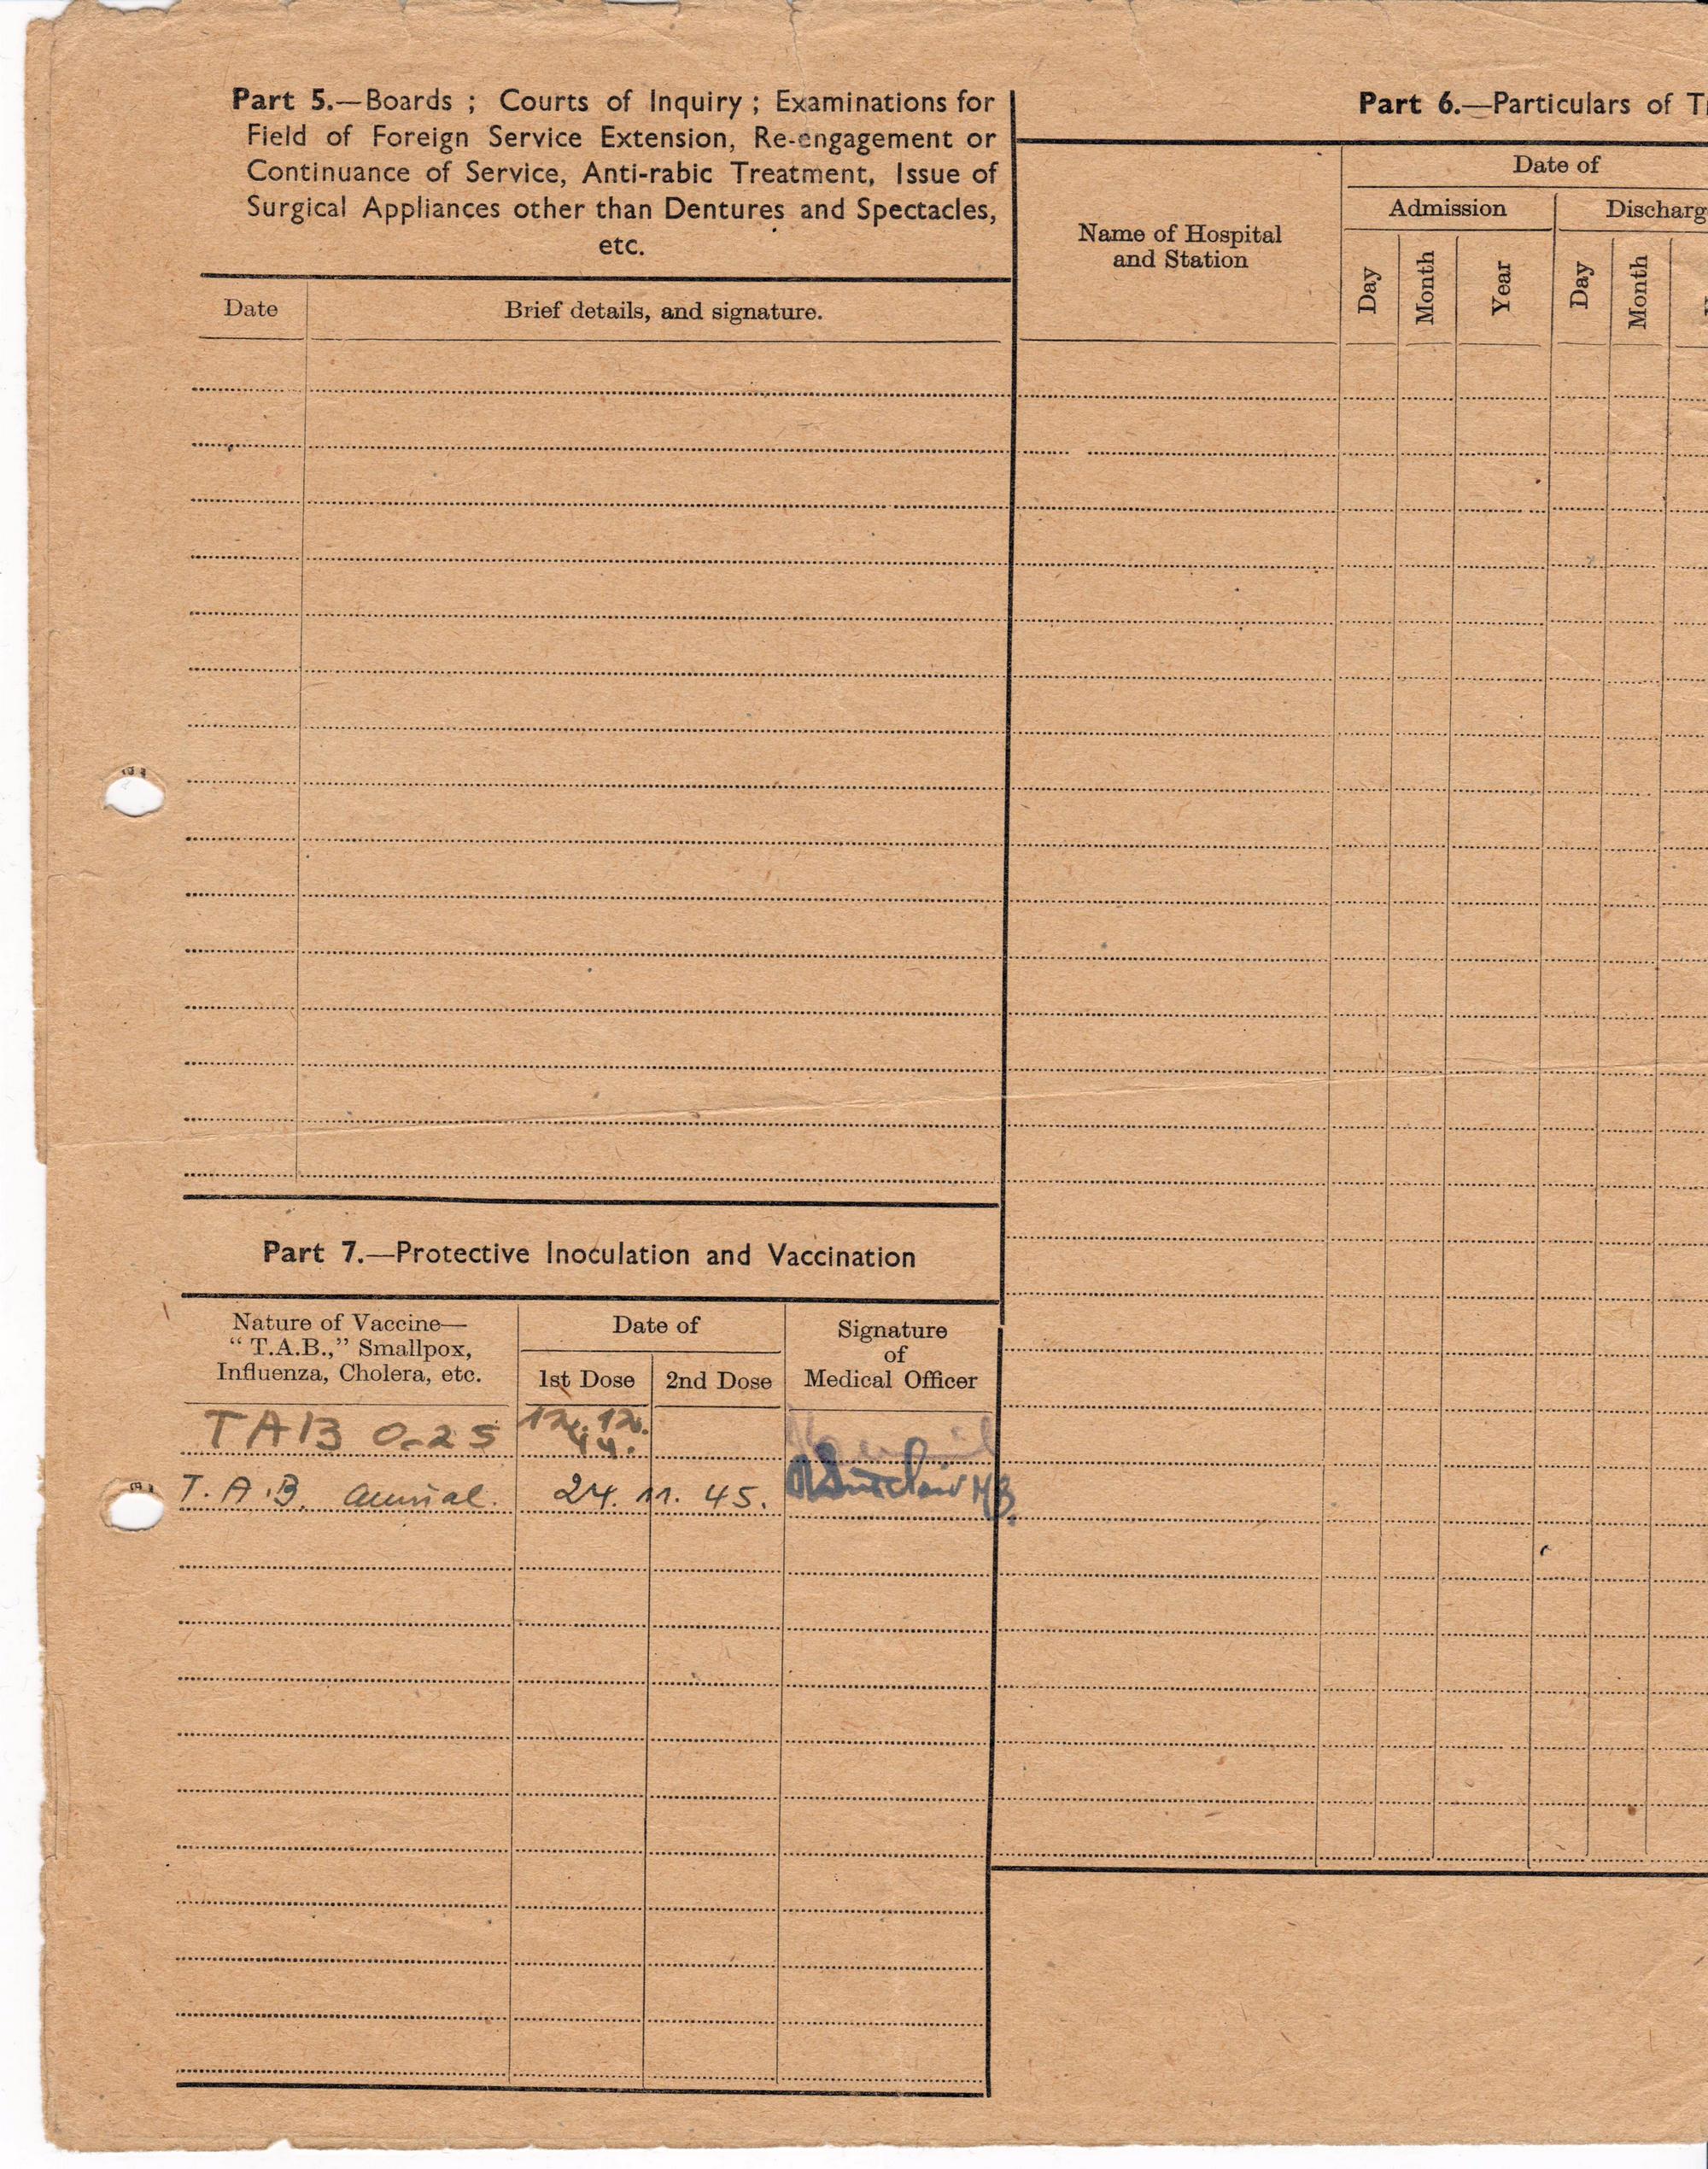 Part 5.—Boards ; Courts of Inquiry ; Examinations for
Field of Foreign Service Extension, Re-engagement or
Continuance of Service, Anti-rabic Treatment, Issue of
Surgical Appliances other than Dentures and Spectacles,
etc.
Date
Brief details, and signature.
Part 6.—Particulars of
Name of Hospital
and Station
Date of
Admission
Discharg
Day
Month
Year
Day
Month
Part 7.—Protective Inoculation and Vaccination
Nature of Vaccine—
“ T.A.B.,” Smallpox,
Influenza, Cholera, etc.
Date of
1st Dose
2nd Dose
Signature
of
Medical Officer
TAB 0.25 12.12.
44.
T.A.B. annual. 24. 11. 45.
Sinclair MB.